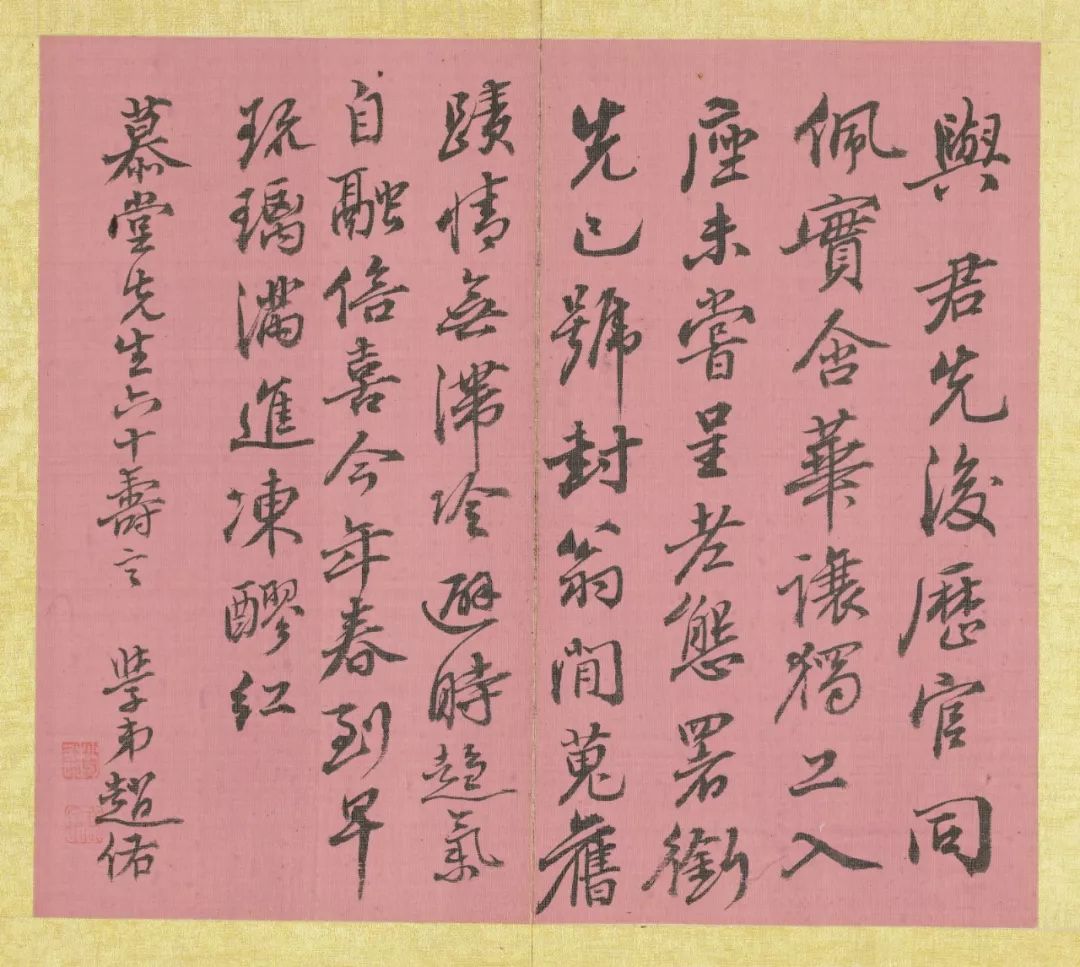 與君先後歷官同
佩實含華讓獨工入
座未嘗呈老態署銜
先已號封翁閒蒐舊
蹟情無滯冷避時趨氣
自融倍喜今年春到早
琉璃滿進凍醪紅
慕堂先生六十壽言 學弟趙佑